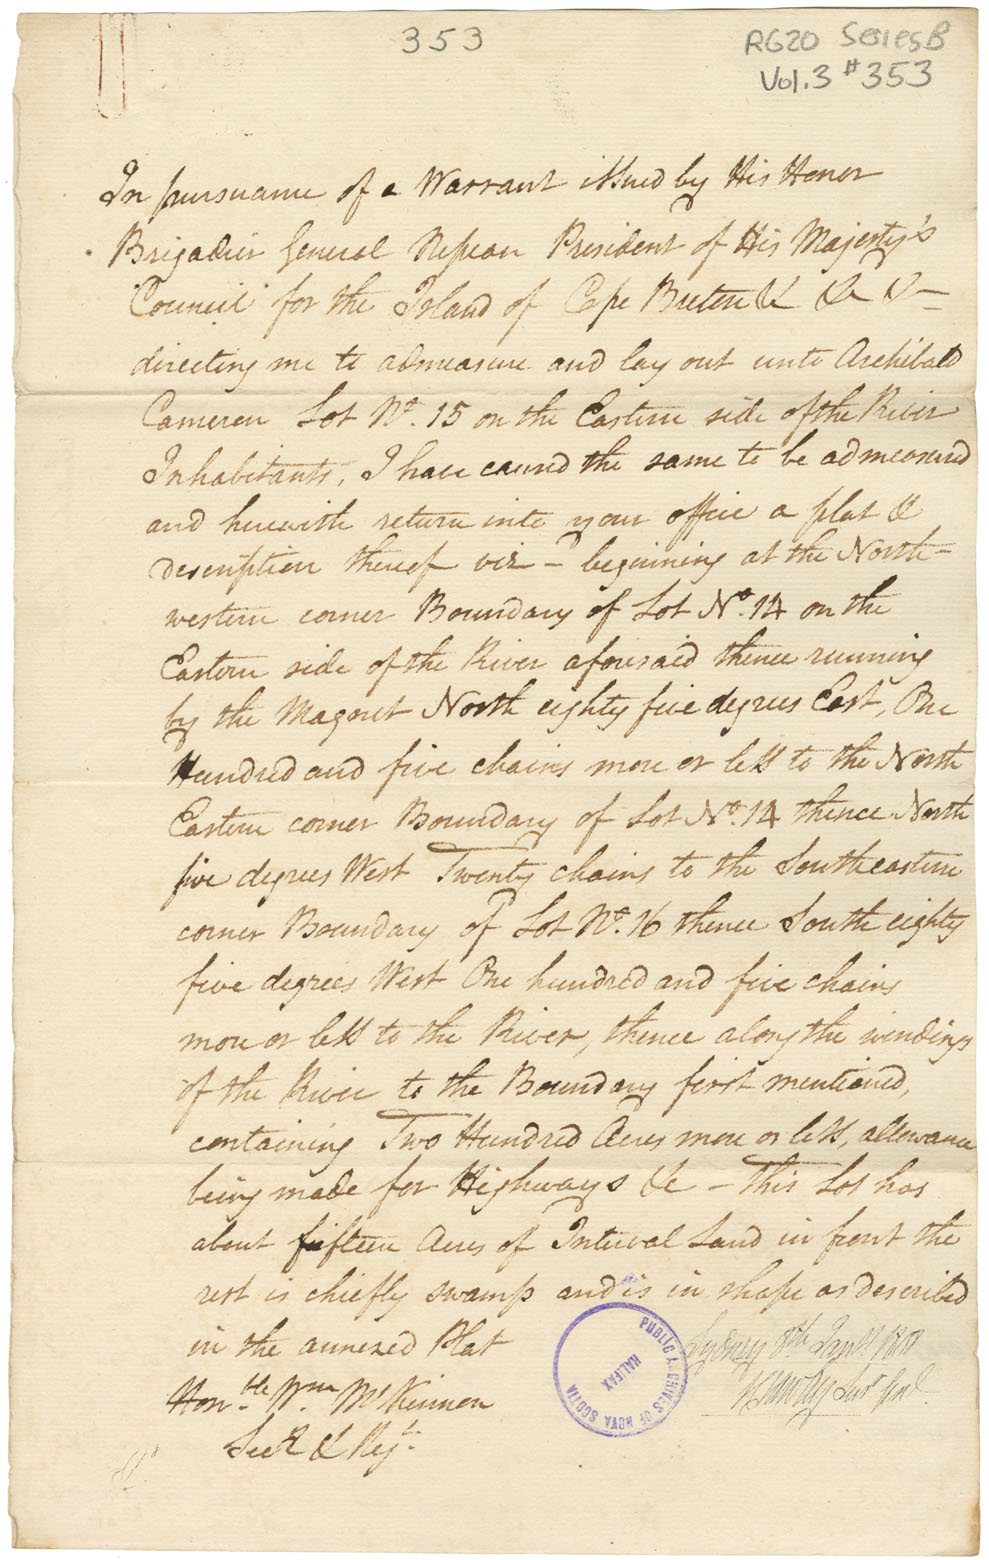 353
RG20 Series B
Vol. 3 # 353
In pursuance of a Warrant issued by His Honor
Brigadier General Nepean President of His Majesty's
Council for the Island of Cape Breton & &c &c
directing me to admeasure and lay out unto Archibald
Cameron Lot No. 15 on the Eastern side of the River
Inhabitants, I have caused the same to be admeasured
and herewith return into your office a plat &
description thereof viz - beginning at the North-
western corner Boundary of Lot No. 14 on the
Eastern side of the River aforesaid thence running
by the Magnet North eighty five degrees East, One
Hundred and five chains more or less to the North
Eastern corner Boundary of Lot No. 14 thence North
five degrees West Twenty chains to the Southeastern
corner Boundary of Lot No. 16 thence South eighty
five degrees West One hundred and five chains
more or less to the River, thence along the windings
of the River to the Boundary first mentioned,
containing Two Hundred Acres more or less, allowance
being made for Highways &c - This Lot has
about fifteen Acres of Interval Land in front the
rest is chiefly swamp and is in shape as described
in the annexed Plat
Sydney 8th Jany
Honble Wm McKinnon
Surr Genl
Secy & Regr
PUBLIC ARCHIVES OF NOVA SCOTIA
HALIFAX